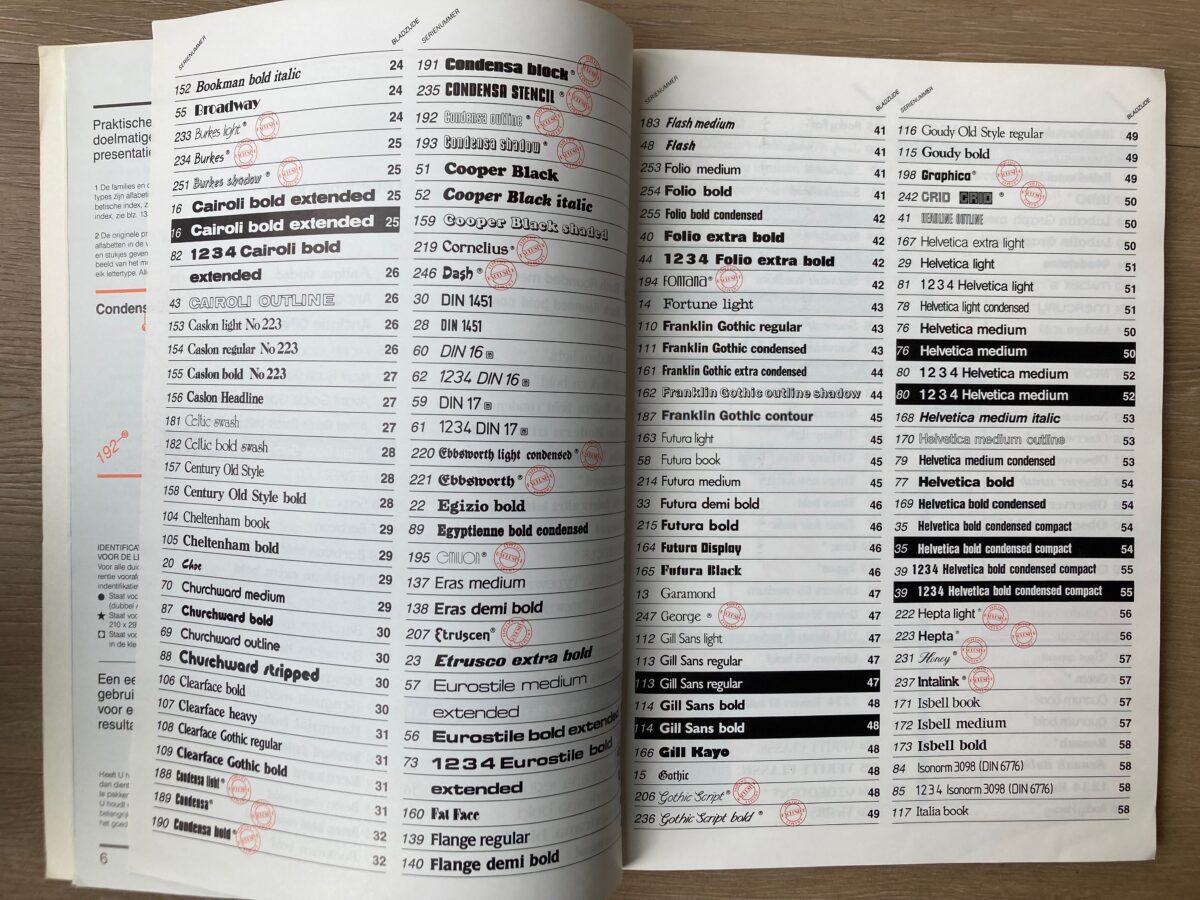 Praktische
doelmatige
presentatie
1 De families en
types zijn alfabeti
betische index, z
index, zie blz. 13
2 De originele pr
alfabetten in de v
en stukjes gever
beeld van het m
elk lettertype. All
Condens
192
IDENTIFICAT
VOOR DE LE
Voor alle duid
rentie vooraf
indentifikatie
Staat vo
(dubbel A
Staat vo
210 x 29
Staat vo
in de kle
Een ee
gebrui
voor e
resulta
Heeft U h
dan dient
te pakken
U houdt
belangrijk
het goed
6
SERIENUMMER
BLADZIJDE
152 Bookman bold italic 24
55 Broadway 24
233 Burkes light® 24
234 Burkes® 25
251 Burkes shadow® 25
16 Cairoli bold extended 25
16 Cairoli bold extended 25
82 1234 Cairoli bold
extended 26
43 CAIROLI OUTLINE 26
153 Caslon light No 223 26
154 Caslon regular No 223 26
155 Caslon bold No 223 27
156 Caslon Headline 27
181 Celtic swash 27
182 Celtic bold swash 28
157 Century Old Style 28
158 Century Old Style bold 28
104 Cheltenham book 29
105 Cheltenham bold 29
20 Choc
70 Churchward medium 29
87 Churchward bold 30
69 Churchward outline 30
88 Churchward stripped 30
106 Clearface bold 30
107 Clearface heavy 31
108 Clearface Gothic regular 31
109 Clearface Gothic bold 31
188 Condensa light® 31
189 Condensa® 32
190 Condensa bold® 32
SERIENUMMER
191 Condensa block®
235 CONDENSA STENCIL®
192 Condensa outline®
193 Condensa shadow®
51 Cooper Black
52 Cooper Black italic
159 Cooper Black shaded
219 Cornelius®
246 Dash®
30 DIN 1451
28 DIN 1451
60 DIN 16
62 1234 DIN 16
59 DIN 17
61 1234 DIN 17
220 Ebbsworth light condensed®
221 Ebbsworth®
22 Egizio bold
89 Egyptienne bold condensed
195 EMILION®
137 Eras medium
138 Eras demi bold
207 Etruscen®
23 Etrusco extra bold
57 Eurostile medium
extended
56 Eurostile bold extended
73 1234 Eurostile bold
extended
160 Fat Face
139 Flange regular
140 Flange demi bold
SERIENUMMER
BLADZIJDE
183 Flash medium 41
48 Flash 41
253 Folio medium 41
254 Folio bold 41
255 Folio bold condensed 42
40 Folio extra bold 42
44 1234 Folio extra bold 42
194 FONTANA® 42
14 Fortune light 43
110 Franklin Gothic regular 43
111 Franklin Gothic condensed 43
161 Franklin Gothic extra condensed 44
162 Franklin Gothic outline shadow 44
187 Franklin Gothic contour 45
163 Futura light 45
58 Futura book 45
214 Futura medium 45
33 Futura demi bold 46
215 Futura bold 46
164 Futura Display 46
165 Futura Black 46
13 Garamond 47
247 George® 47
112 Gill Sans light 47
113 Gill Sans regular 47
113 Gill Sans regular 47
114 Gill Sans bold 48
114 Gill Sans bold 48
166 Gill Kayo 48
15 Gothic 48
206 Gothic Script® 49
236 Gothic Script bold® 49
SERIENUMMER
BLADZIJDE
116 Goudy Old Style regular 49
115 Goudy bold 49
198 Graphica® 49
242 GRID GRID® 50
41 HEADLINE OUTLINE 50
167 Helvetica extra light 50
29 Helvetica light 51
81 1234 Helvetica light 51
78 Helvetica light condensed 51
76 Helvetica medium 50
76 Helvetica medium 50
80 1234 Helvetica medium 52
80 1234 Helvetica medium 52
168 Helvetica medium italic 53
170 Helvetica medium outline 53
79 Helvetica medium condensed 53
77 Helvetica bold 54
169 Helvetica bold condensed 54
35 Helvetica bold condensed compact 54
35 Helvetica bold condensed compact 54
39 1234 Helvetica bold condensed compact 55
39 1234 Helvetica bold condensed compact 55
222 Hepta light® 56
223 Hepta® 56
231 Honey® 57
237 Intalink® 57
171 Isbell book 57
172 Isbell medium 57
173 Isbell bold 58
84 Isonorm 3098 (DIN 6776) 58
85 1234 Isonorm 3098 (DIN 6776) 58
117 Italia book 58